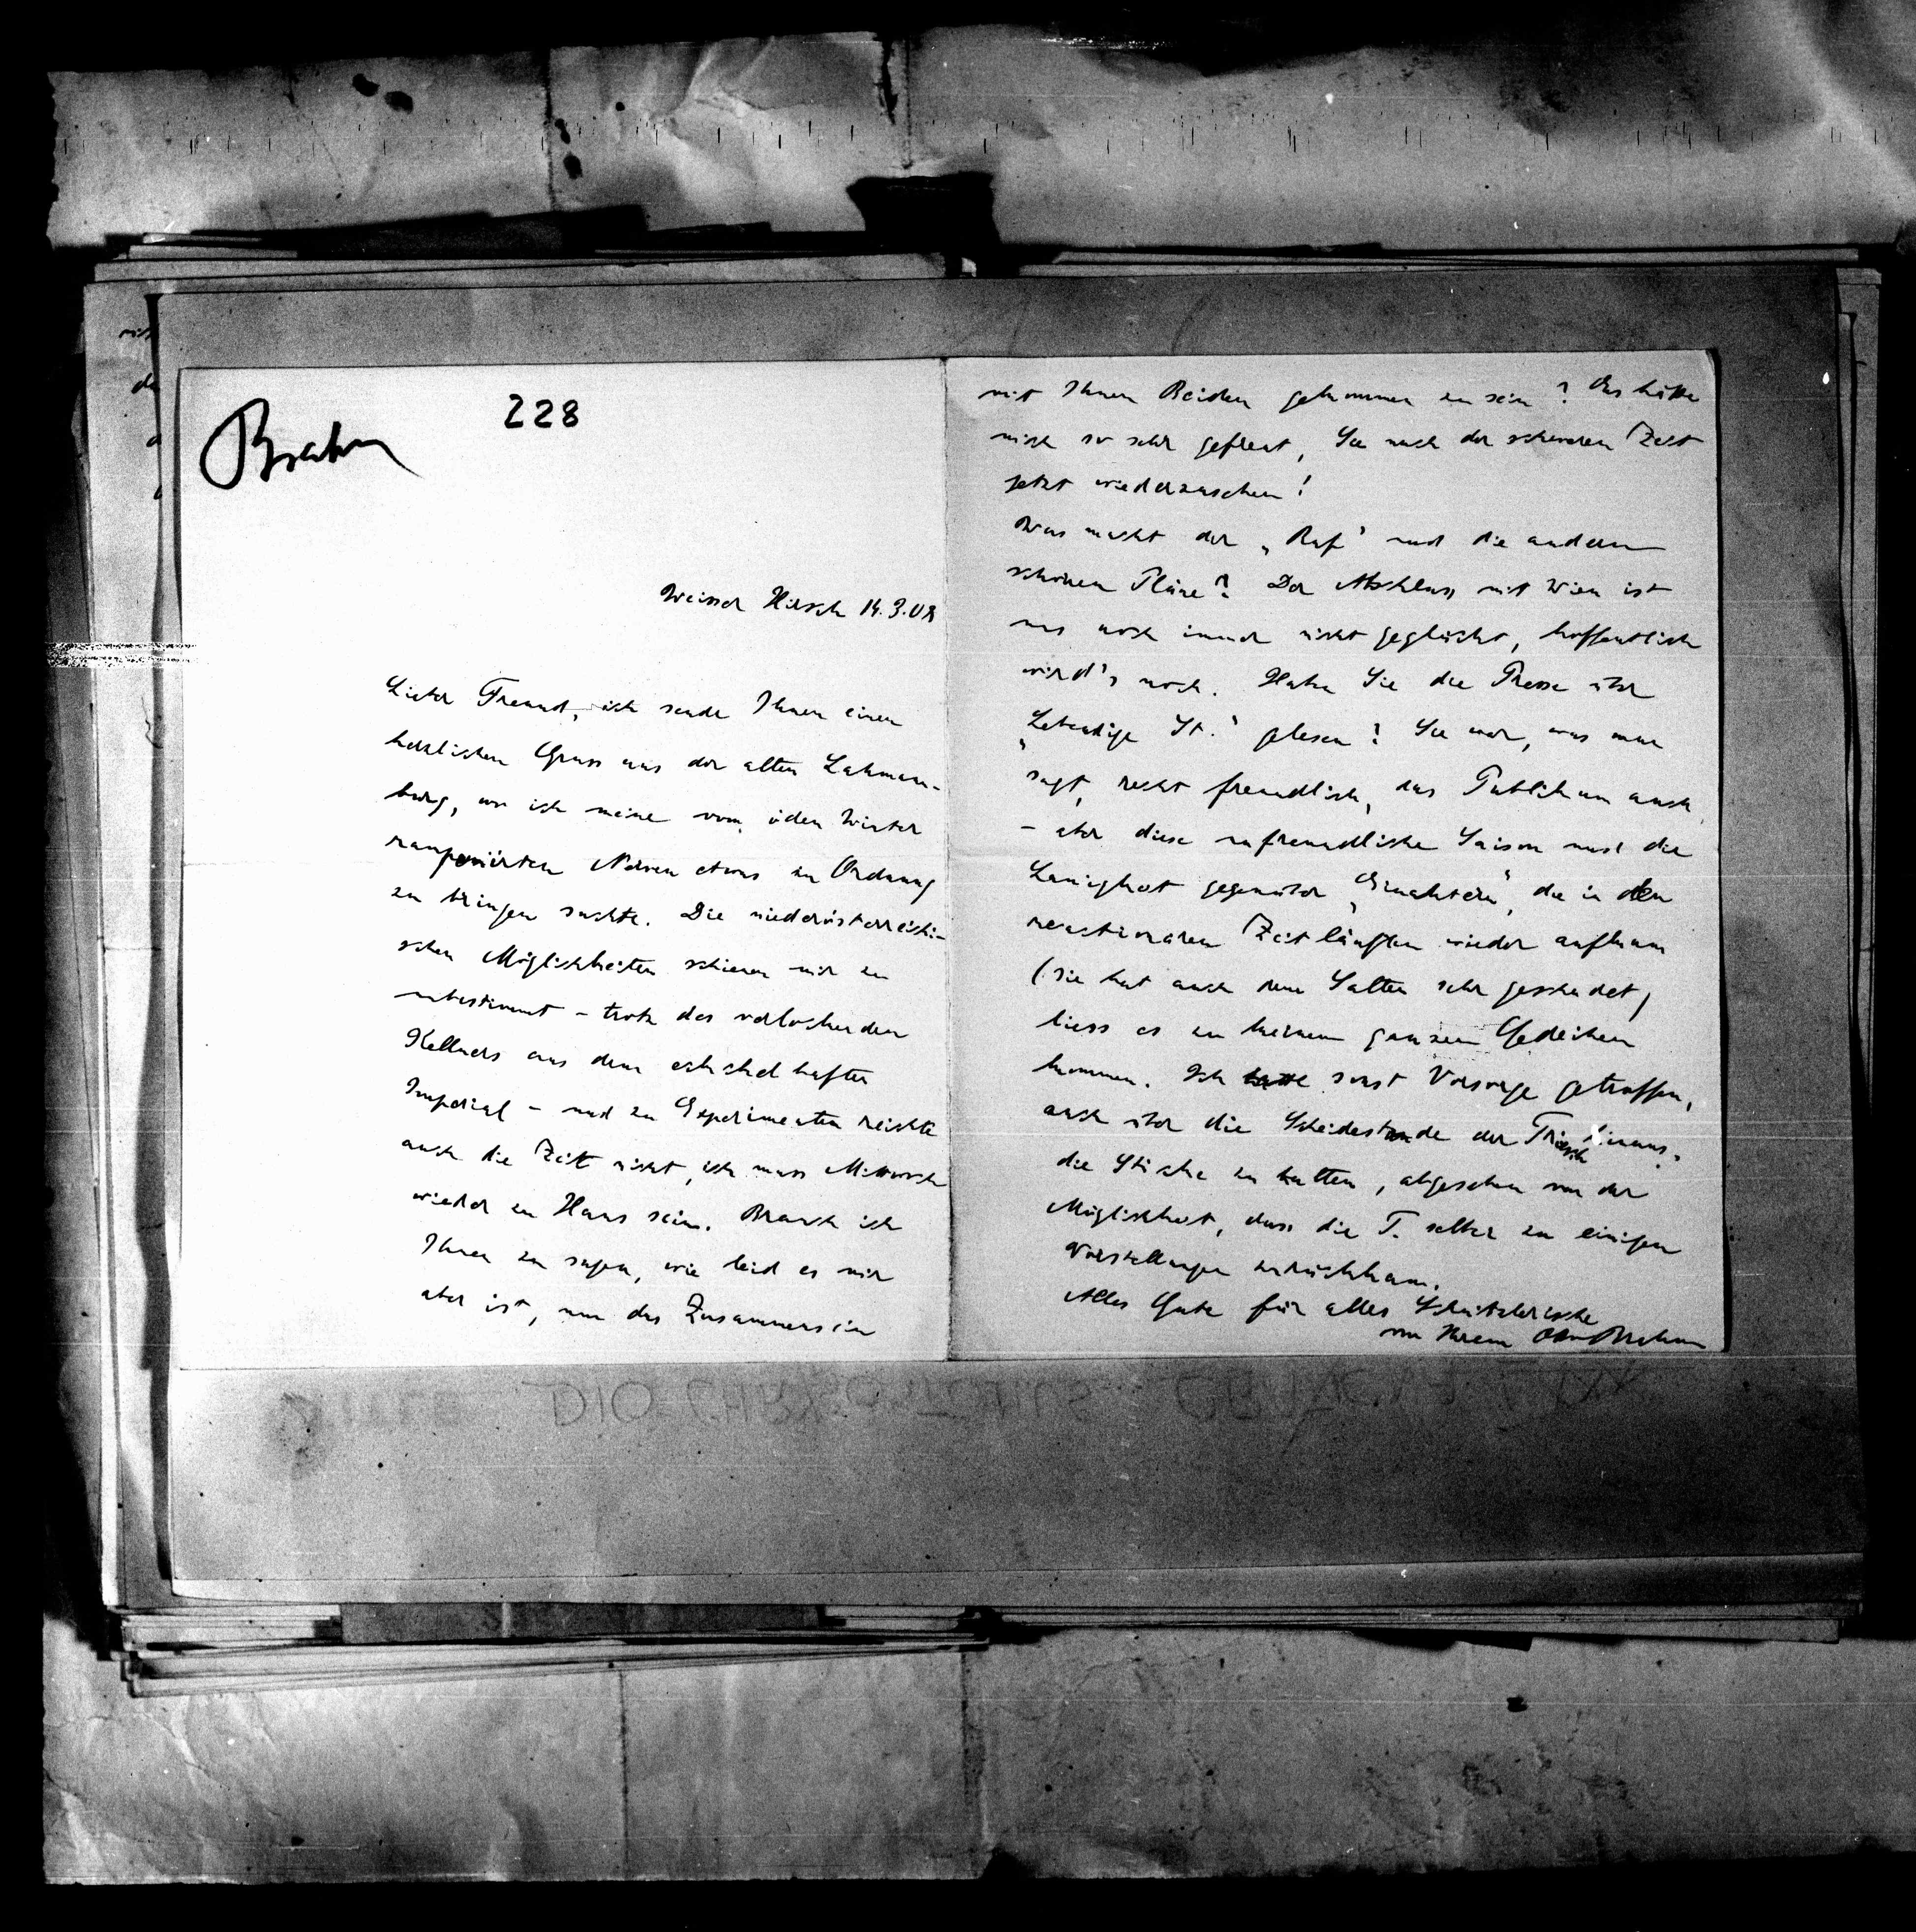 Brahm
228
Weisser Hirsch 14.3.08
Lieber Freund, ich sende Ihnen einen
herzlichen Gruss aus der alten Lahmann-
burg, wo ich meine vom öden Winter
ramponirten Nerven etwas in Ordnung
zu bringen suchte. Die niederösterreichi-
schen Möglichkeiten schienen mir zu
unbestimmt – trotz des verlockenden
Kellners aus dem ekelhaften
Imperial – und zu Experimenten reichte
auch die Zeit nicht, ich muss Mittwoch
wieder zu Haus sein. Brauch ich
Ihnen zu sagen, wie leid es mir
aber ist, um das Zusammensein
mit Ihnen Beiden gekommen zu sein? Das hätte
mich so sehr gefreut, Sie nach der schweren Zeit
jetzt wiederzusehen!
Was macht der „Ruf“ und die andern
schönen Pläne? Der Abschluss mit Wien ist
uns noch immer nicht geglückt, hoffentlich
wird's noch. Haben Sie die Presse über
„Lebendige St.“ gelesen? Sie war, was man
sagt, recht freundlich, das Publikum auch,
– aber diese unfreundliche Saison und die
Lauigkeit gegenüber „Einaktern“, die in den
reactionären Zeitläuften wieder aufkam
(sie hat auch dem Salten sehr geschadet)
liess es zu keinem ganzen Gedeihen
kommen. Ich hatte sonst Vorsorge getroffen,
auch über die Scheidestunde der Triesch hinaus,
die Stücke zu halten, abgesehen von der
Möglichkeit, dass die T. selber zu einigen
Vorstellungen zurückkam.
Alles Gute für alles Schnitzlerische
von Ihrem Otto Brahm